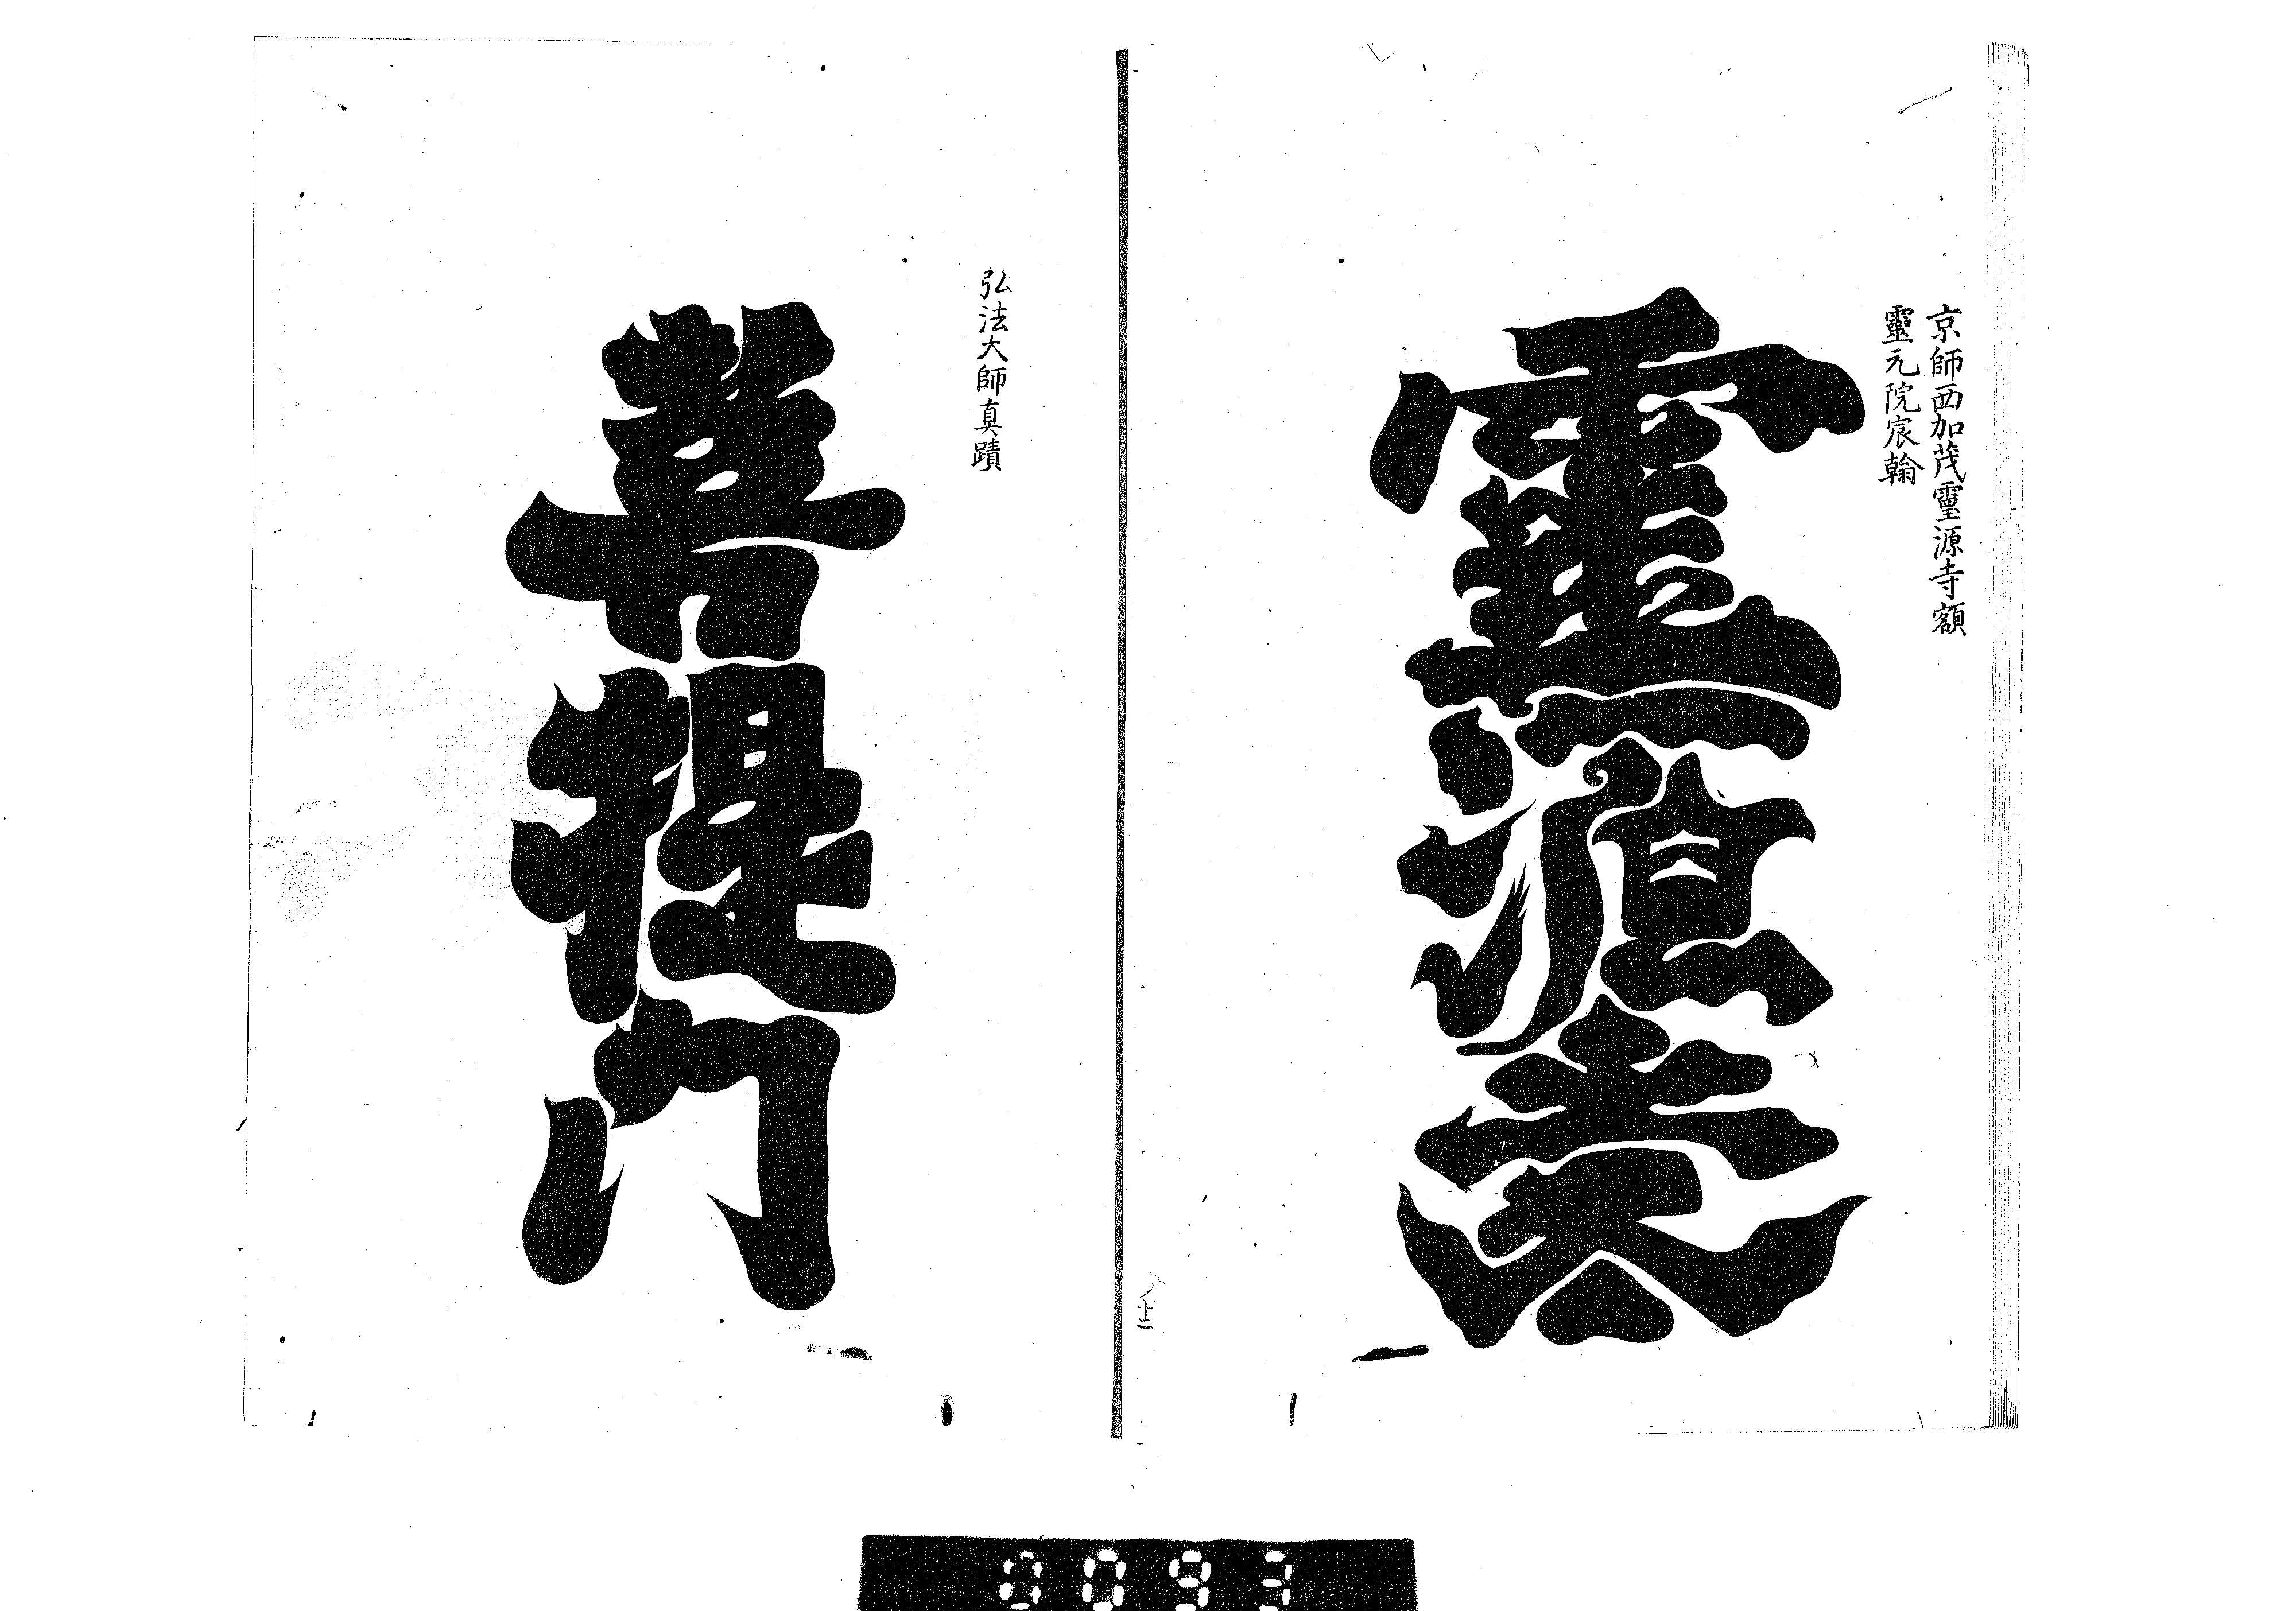 京師西加茂靈源寺額
靈元院宸翰
靈源
弘法大師真蹟
菩提門
0093